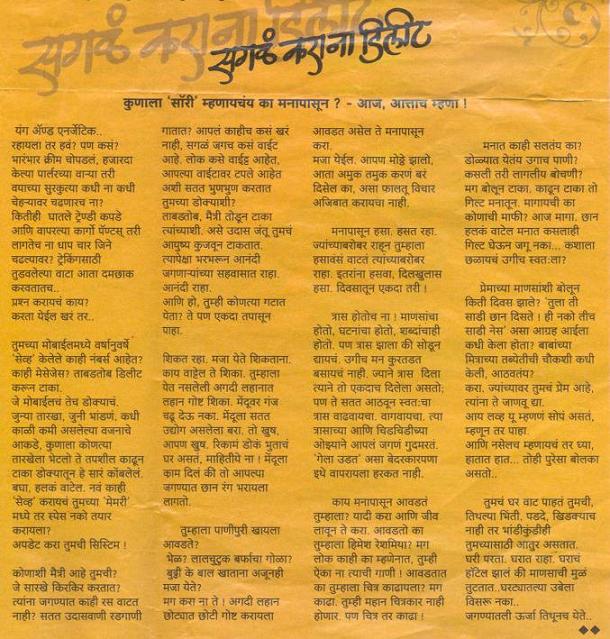 सगळं कराना डिलीट
सगळं कराना डिलीट
कुणाला 'सॉरी' म्हणायचंय का मनापासून ? - आज, आत्ताच म्हणा !
यंग अॅण्ड एनर्जेटिक..
रहायला तर हवं? पण कसं?
भारंभार क्रीम चोपडलं, हजारदा
केल्या पार्लरच्या वाऱ्या तरी
वयाच्या सुरकुत्या कधी ना कधी
चेहऱ्यावर चढणारच ना?
कितीही घातले ट्रेण्डी कपडे
आणि वापरल्या कार्गो पॅण्टस् तरी
लागतेच ना धाप चार जिने
चढल्यावर? ट्रेकिंगसाठी
तुडवलेल्या वाटा आता दमछाक
करवतातच..
प्रश्न करायचं काय?
करता येईल खरं तर..
तुमच्या मोबाईलमध्ये वर्षानुवर्षे
'सेव्ह' केलेले काही नंबर्स आहेत?
काही मेसेजेस? ताबडतोब डिलीट
करून टाका.
जे मोबाईलचं तेच डोक्याचं.
जुन्या तारखा, जुनी भांडणं. कधी
काळी कमी असलेल्या वजनाचे
आकडे, कुणाला कोणत्या
तारखेला भेटलो ते तपशील काढून
टाका डोक्यातून हे सारं कोंबलेलं.
बघा, हलकं वाटेल. नवं काही
'सेव्ह' करायचं तुमच्या 'मेमरी'
मध्ये तर स्पेस नको तयार
करायला?
अपडेट करा तुमची सिस्टिम !
कोणाशी मैत्री आहे तुमची?
जे सारखे किरकिर करतात?
त्यांना जगण्यात काही रस वाटत
नाही? सतत उदासवाणी रडगाणी
गातात? आपलं काहीच कसं खरं
नाही, सगळं जगच कसं वाईट
आहे. लोक कसे वाईट्ट आहेत,
आपल्या वाईटावर टपले आहेत
अशी सतत भुणभुण करतात
तुमच्या डोक्याशी?
ताबडतोब, मैत्री तोडून टाका
त्यांच्याशी. असे उदास जंतू तुमचं
आयुष्य कुजवून टाकतात.
त्यापेक्षा भरभरून आनंदी
जगणाऱ्यांच्या सहवासात राहा.
आनंदी राहा.
आणि हो, तुम्ही कोणत्या गटात
येता? ते पण एकदा तपासून
पाहा.
शिकत रहा. मजा येते शिकताना.
काय वाट्टेल ते शिका. तुम्हाला
येत नसलेली अगदी लहानात
लहान गोष्ट शिका. मेंदूवर गंज
चढू देऊ नका. मेंदूला सतत
उद्योग असलेला बरा. तो खुष,
आपण खुष. रिकामं डोकं भुताचं
घर असतं, माहितीये ना ! मेंदूला
काम दिलं की तो आपल्या
जगण्यात छान रंग भरायला
लागतो.
तुम्हाला पाणीपुरी खायला
आवडते?
भेळ? लालचुटुक बर्फाचा गोळा?
बुड्डी के बाल खाताना अजूनही
मजा येते?
मग करा ना ते ! अगदी लहान
छोट्यात छोटी गोष्ट करायला
आवडत असेल ते मनापासून
करा.
मजा येईल. आपण मोठ्ठे झालो,
आता अमुक तमुक करणं बरं
दिसेल का, असा फालतू विचार
अजिबात करायचा नाही.
मनापासून हसा. हसत रहा.
ज्यांच्याबरोबर राहून तुम्हाला
हसावंसं वाटतं त्यांच्याबरोबर
राहा. इतरांना हसवा, दिलखुलास
हसा. दिवसातून एकदा तरी !
त्रास होतोच ना ! माणसांचा
होतो, घटनांचा होतो, शब्दांचाही
होतो. पण त्रास झाला की सोडून
द्यायचं. उगीच मन कुरतडत
बसायचं नाही. ज्याने त्रास दिला
त्याने तो एकदाच दिलेला असतो;
पण ते सतत आठवून स्वतःचा
त्रास वाढवायचा. वागवायचा. त्या
त्रासाच्या आणि चिडचिडीच्या
ओझ्याने आपलं जगणं गुदमरतं.
'गेला उडत' असा बेदरकारपणा
इथे वापरायला हरकत नाही.
काय मनापासून आवडतं
तुम्हाला? यादी करा आणि जीव
लावून ते करा. आवडतो का
तुम्हाला हिमेश रेशमिया? मग
लोक काही का म्हणेनात, तुम्ही
ऐका ना त्याची गाणी ! आवडतात
का तुम्हाला चित्र काढायला? मग
काढा. तुम्ही महान चित्रकार नाही
होणार. पण चित्र तर काढा !
मनात काही सलतंय का?
डोळ्यात येतंय उगाच पाणी?
कसली तरी लागलीय बोचणी?
मग बोलून टाका. काढून टाका तो
गिल्ट मनातून. मागायची का
कोणाची माफी? आज मागा. छान
हलकं वाटेल मनात कसलाही
गिल्ट घेऊन जगू नका... कशाला
छळायचं उगीच स्वतःला?
प्रेमाच्या माणसांशी बोलून
किती दिवस झाले? 'तुला ती
साडी छान दिसते ! ही नको तीच
साडी नेस' असा आग्रह आईला
कधी केला होता? बाबांच्या
मित्राच्या तब्येतीची चौकशी कधी
केली, आठवतंय?
करा. ज्यांच्यावर तुमचं प्रेम आहे,
त्यांना ते जाणवू द्या.
आय लव्ह यू म्हणणं सोपं असतं,
म्हणून तर पाहा.
आणि नसेलच म्हणायचं तर घ्या,
हातात हात... तोही पुरेसा बोलका
असतो..
तुमचं घर वाट पाहतं तुमची,
तिथल्या भिंती, पडदे, खिडक्याच
नाही तर भांडीकुंडीही
तुमच्यासाठी आतुर असतात.
घरी परता. घरात राहा. घराचं
हॉटेल झालं की माणसाची मुळं
तुटतात..घरट्यातल्या उबेला
विसरू नका..
जगण्यातली ऊर्जा तिथूनच येते..